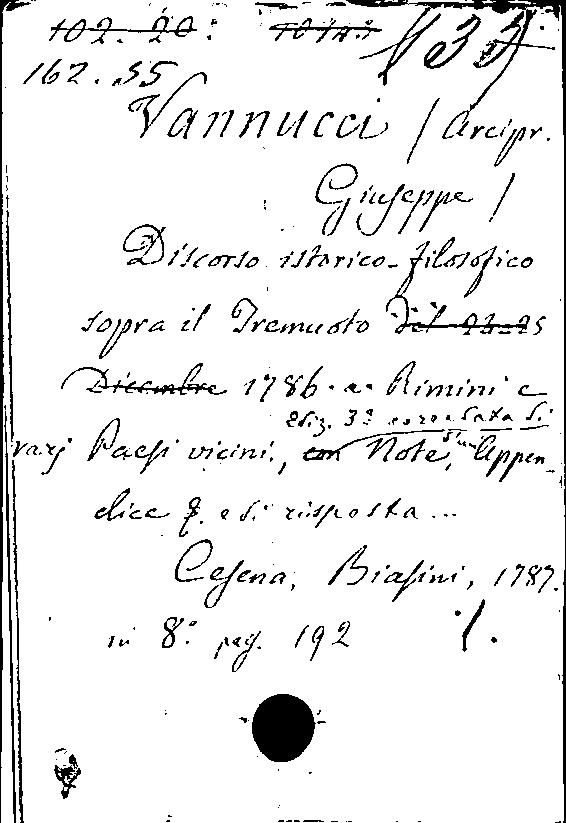 102. 20:
162. 55
Vannucci / Arcipr.
Giuseppe /
Discorso istorico-filosofico
sopra il Tremuoto del 24-25
Dicembre 1786. a Rimini e
ediz. 3ª corredata di
varj Paesi vicini, con Note, d'un Appen-
dice q. e di risposta ...
Cesena, Biasini, 1787.
in 8.º pag. 192 ./.